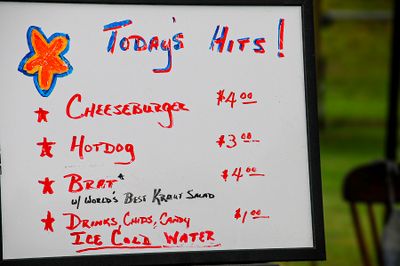 TODAY'S HITS!
CHEESEBURGER $4.00
HOTDOG $3.00
BRAT* $4.00
W/ WORLD'S BEST KRAUT SALAD
DRINKS, CHIPS, CANDY $1.00
ICE COLD WATER